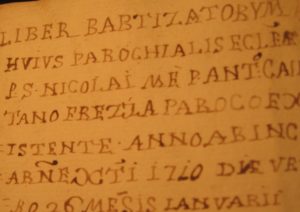 LIBER BABTIZATORVM
HVIVS PAROCHIALIS ECLEÆ
P.S. NICOLAI ME PANT: CAI
TANO FREZIA PAROCO EX
ISTENTE ANNO AB INC
ARNE 1710 DIE VE
RO 26 MĒSIS IANVARII